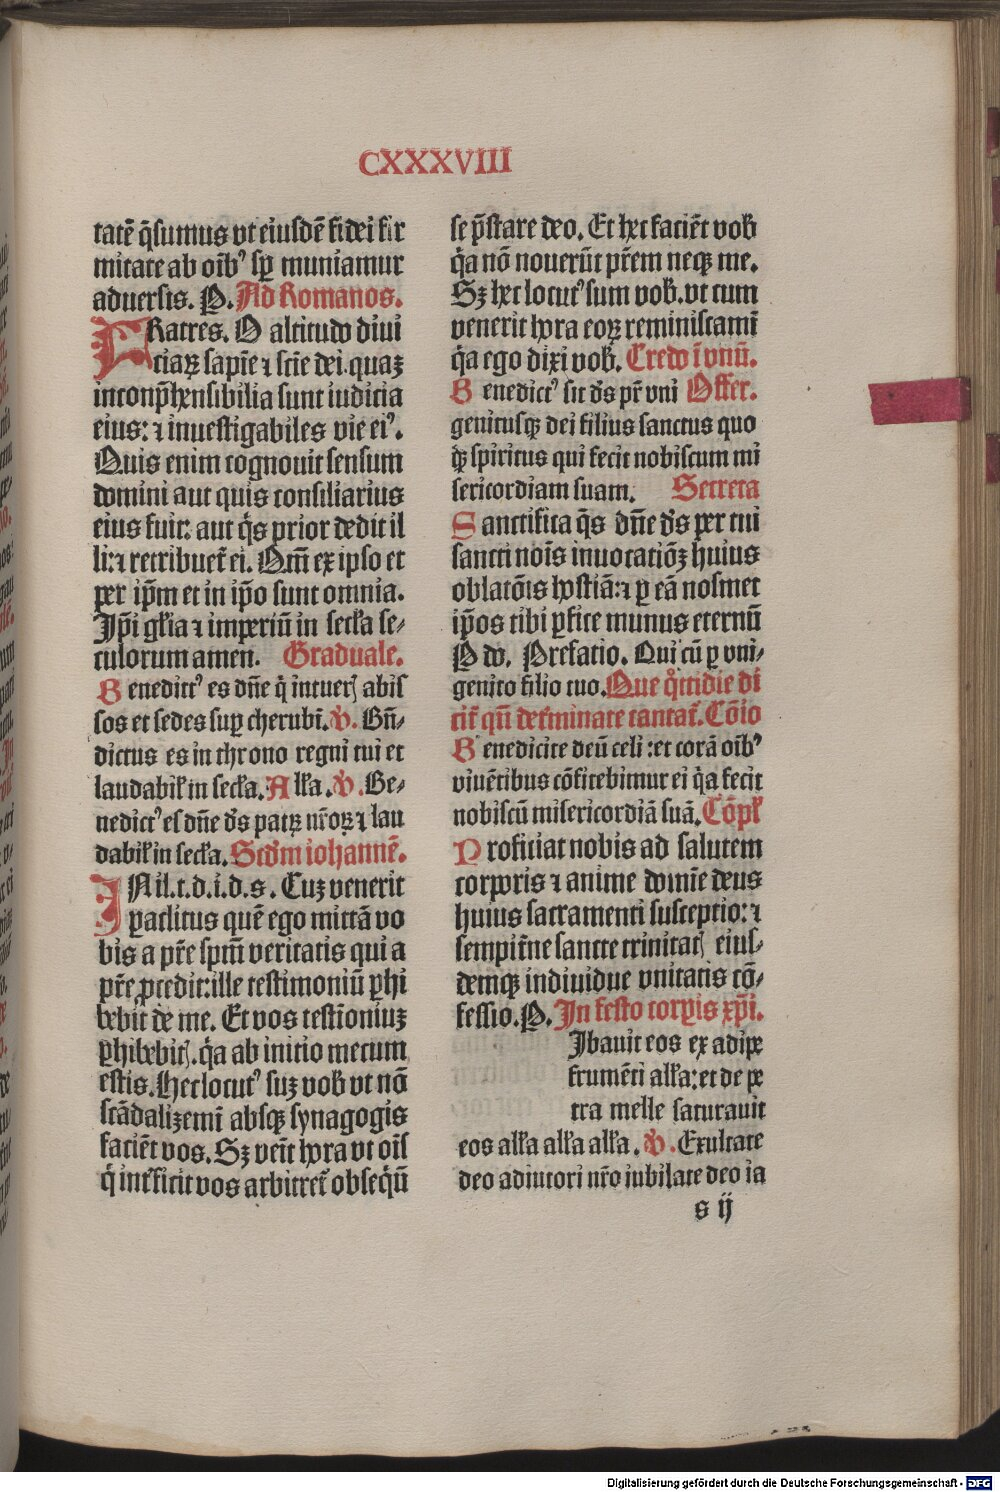 CXXXVIII
tatē q̄sumus vt eiusdē fidei fir
mitate ab oīb⁹ sp̄ muniamur
aduersis. P. Ad Romanos.
FRatres. O altitudo diui
ciaꝝ sapīe ⁊ scīe dei. quaꝫ
inconp̄hensibilia sunt iudicia
eius: ⁊ inuestigabiles vie ei⁹.
Quis enim cognouit sensum
domini aut quis consiliarius
eius fuit: aut q̄s prior dedit il
li: ⁊ retribuet̄ ei. Qm̄ ex ipso et
per ip̄m et in ip̄o sunt omnia.
Ip̄i gl̄ia ⁊ imperiū in secl̄a se⸗
culorum amen. Graduale.
Benedict⁹ es dn̄e q̄ intueris abis
sos et sedes suꝑ cherubī. V̄. Bn̄⸗
dictus es in throno regni tui et
laudabil̄ in secl̄a. All̄a. V̄. Be⸗
nedict⁹ es dn̄e ds̄ patꝝ nr̄oꝝ ⁊ lau
dabil̄ in secl̄a. Scd̄m iohannē.
IN il. t. d. i. d. s. Cuꝫ venerit
ꝑaclitus quē ego mittā vo
bis a pr̄e sp̄m veritatis qui a
pr̄e ꝓcedit: ille testimoniū ꝑhi
bebit de me. Et vos testīoniuꝫ
ꝑhibebitis. q̄a ab initio mecum
estis. Hec locut⁹ suꝫ vob̄ vt nō
scādalizemī absqꝫ synagogis
faciēt vos. Sꝫ veīt hora vt oīs
q̄ int̄ficit vos arbitret̄ obseq̄ū
se p̄stare deo. Et hec faciēt vob̄
q̄a nō nouerūt pr̄em neqꝫ me.
Sꝫ hec locut⁹ sum vob̄. vt cum
venerit hora eoꝝ reminiscamī
q̄a ego dixi vob̄. Credo ī vnū.
Benedict⁹ sit ds̄ pr̄ vni Offer.
genitusqꝫ dei filius sanctus quo
qꝫ spiritus qui fecit nobiscum mi
sericordiam suam. Secreta
Sanctifica q̄s dn̄e ds̄ per tui
sancti noīs inuocatiōꝫ huius
oblatōis hostiā: ⁊ ꝑ eā nosmet
ip̄os tibi ꝑfice munus eternū
P do. Prefatio. Qui cū ꝑ vni⸗
genito filio tuo. Que q̄ttidie di
cit̄ qn̄ det̄minate cantat̄. Cōio
Benedicite deū celi: et corā oīb⁹
viuētibus cōfitebimur ei q̄a fecit
nobiscū misericordiā suā. Cōpl̄
Proficiat nobis ad salutem
corporis ⁊ anime domīe deus
huius sacramenti susceptio: ⁊
sempit̄ne sancte trinitatis eius⸗
demqꝫ indiuidue vnitatis cō⸗
fessio. P. In festo corꝑis xp̄i.
Ibauit eos ex adipe
frumēti all̄a: et de pe
tra melle saturauit
eos all̄a all̄a all̄a. V̄. Exultate
deo adiutori nr̄o iubilate deo ia
s ij
Digitalisierung gefördert durch die Deutsche Forschungsgemeinschaft - DFG